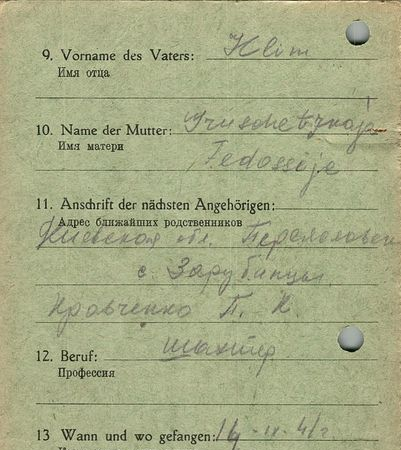 9. Vorname des Vaters: Klim
Имя отца
10. Name der Mutter:
Имя матери
Fedossoje
11. Anschrift der nächsten Angehörigen:
Адрес ближайших родственников
Киевская обл.
с. Зарубинцы
Кравченко П. К.
12. Beruf: шахтер
Профессия
13 Wann und wo gefangen: